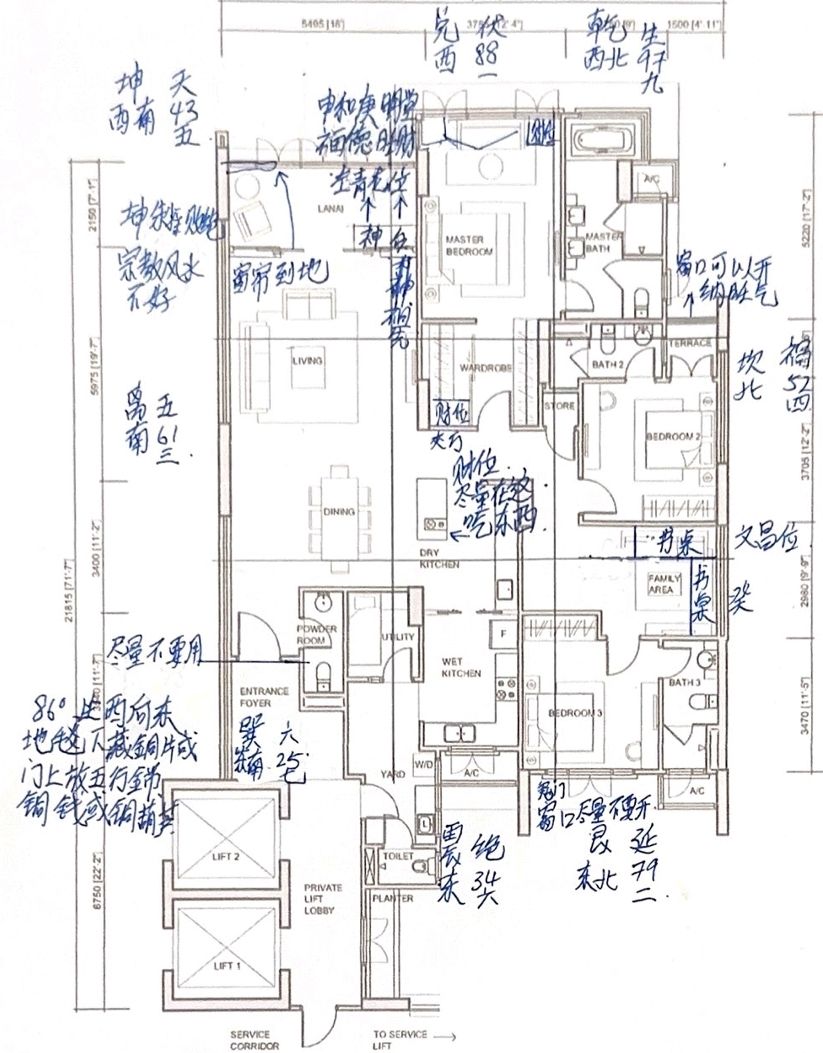 5495 [18']
1500 [4'-11"]
兑 伏
西 88
一
乾 生
西北 97
九
坤 天
西南 43
五
申和庚明堂
福德旺财
坐青龙位
财位
LANAI
神台
A/C
MASTER
BEDROOM
MASTER
BATH
2150 [7'-1"]
5220 [17'-2"]
宗教风水
不好
窗帘到地
窗口可以开
纳旺气
LIVING
WARDROBE
BATH 2
TERRACE
STORE
5975 [19'-7"]
坎 祸
北 52
四
离 五
南 61
三
财位
BEDROOM 2
3705 [12'-2"]
财位
尽量在这
吃东西
DINING
DRY
KITCHEN
书桌
文昌位
FAMILY
AREA
书桌
癸
3400 [11'-2"]
2980 [9'-9"]
21815 [71'-7"]
POWDER
ROOM
UTILITY
F
尽量不要用
WET
KITCHEN
BATH 3
ENTRANCE
FOYER
BEDROOM 3
3470 [11'-5"]
86° 坐西向东
地毯下藏铜片或
门上放五行金帘
铜钱或铜葫芦
巽 六
东南 25
七
YARD
W/D
A/C
A/C
窗口尽量不要开
艮 延
东北 79
二
LIFT 2
震 绝
东 34
六
TOILET
PRIVATE
LIFT
LOBBY
PLANTER
6750 [22'-2"]
LIFT 1
SERVICE
CORRIDOR
TO SERVICE
LIFT